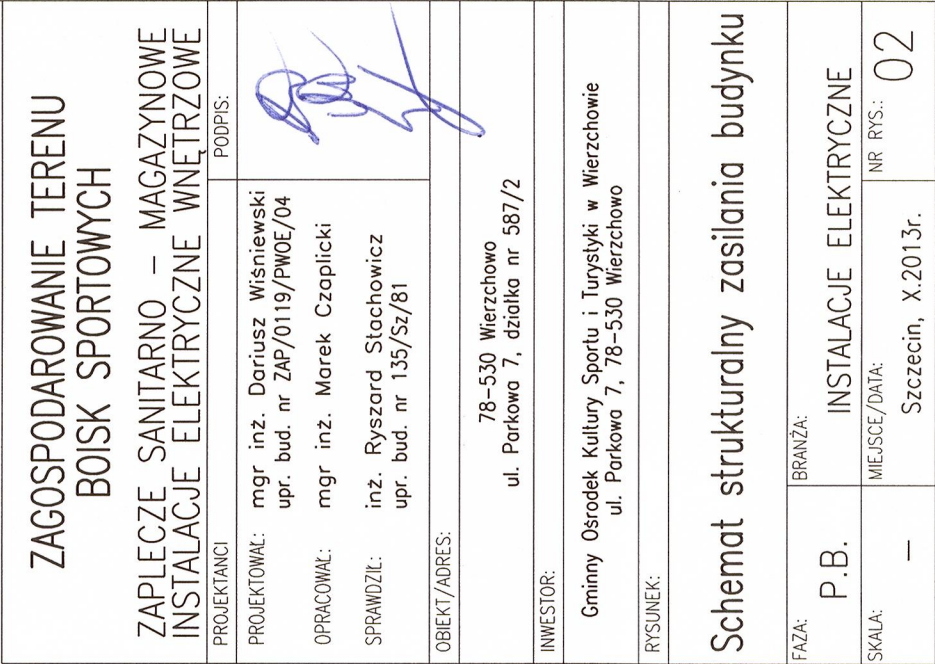 ZAGOSPODAROWANIE TERENU
BOISK SPORTOWYCH
ZAPLECZE SANITARNO – MAGAZYNOWE
INSTALACJE ELEKTRYCZNE WNĘTRZOWE
PROJEKTANCI
PODPIS:
PROJEKTOWAŁ: mgr inż. Dariusz Wiśniewski
upr. bud. nr ZAP/0119/PWOE/04
OPRACOWAŁ: mgr inż. Marek Czaplicki
SPRAWDZIŁ: inż. Ryszard Stachowicz
upr. bud. nr 135/Sz/81
OBIEKT/ADRES:
78-530 Wierzchowo
ul. Parkowa 7, działka nr 587/2
INWESTOR:
Gminny Ośrodek Kultury Sportu i Turystyki w Wierzchowie
ul. Parkowa 7, 78-530 Wierzchowo
RYSUNEK:
Schemat strukturalny zasilania budynku
FAZA:
P.B.
BRANŻA:
INSTALACJE ELEKTRYCZNE
SKALA:
–
MIEJSCE/DATA:
Szczecin, X.2013r.
NR RYS.:
02